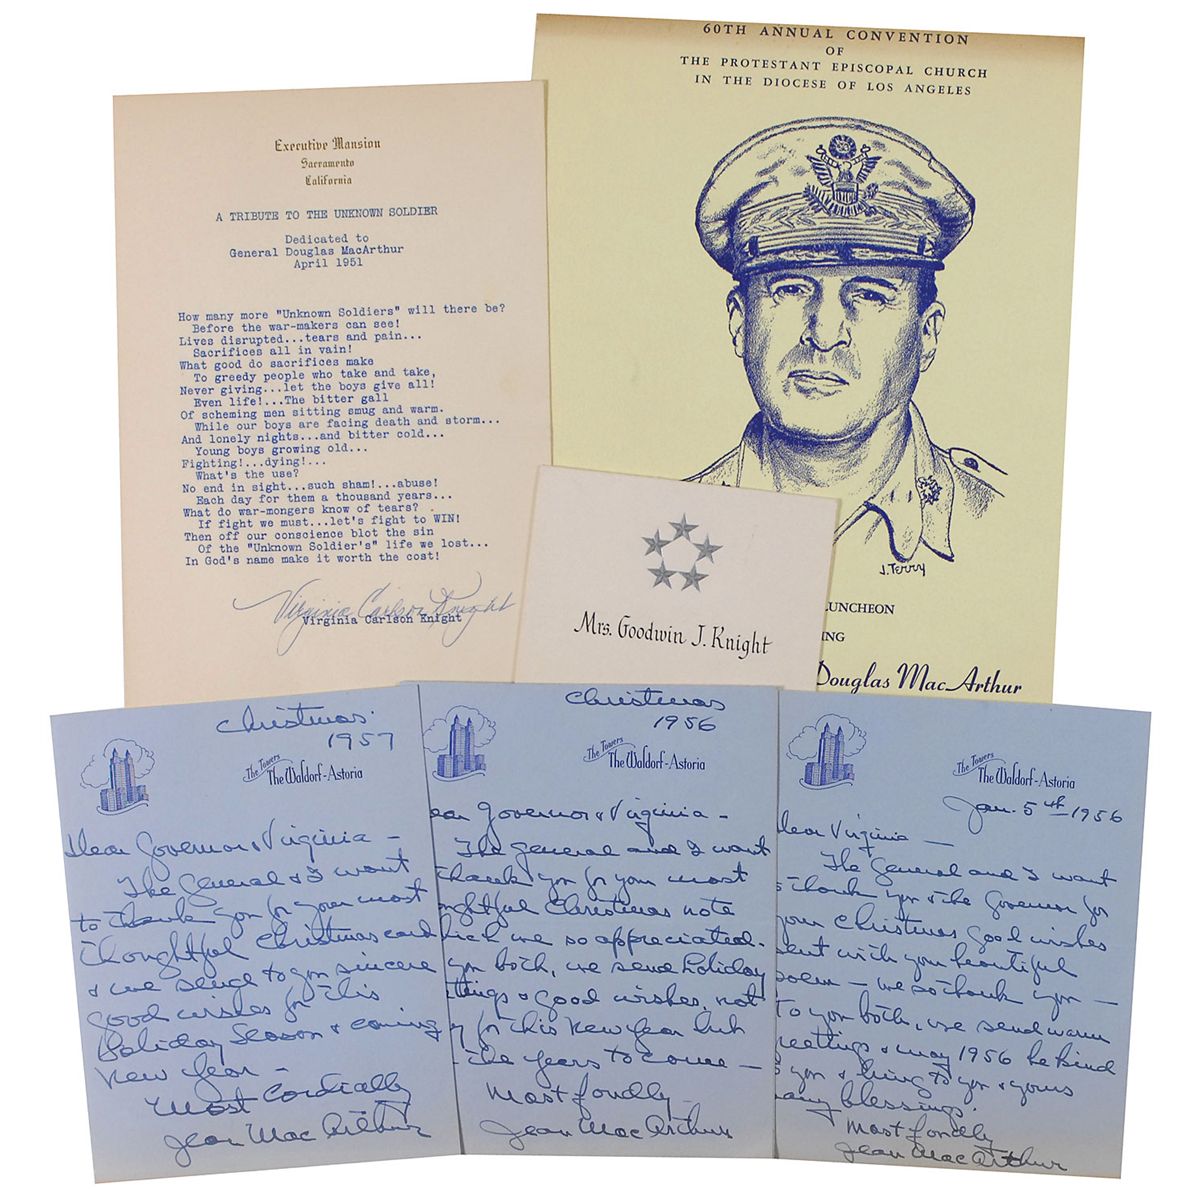 Executive Mansion
Sacramento
California
A TRIBUTE TO THE UNKNOWN SOLDIER
Dedicated to
General Douglas MacArthur
April 1951
How many more "Unknown Soldiers" will there be?
Before the war-makers can see!
Lives disrupted...tears and pain...
Sacrifices all in vain!
What good do sacrifices make
To greedy people who take and take,
Never giving...let the boys give all!
Even life!...The bitter gall
Of scheming men sitting smug and warm.
While our boys are facing death and storm...
And lonely nights...and bitter cold...
Young boys growing old...
Fighting!...dying!...
What's the use?
No end in sight...such sham!...abuse!
Each day for them a thousand years...
What do war-mongers know of tears?
If fight we must...let's fight to WIN!
Then off our conscience blot the sin
Of the "Unknown Soldier's" life we lost...
In God's name make it worth the cost!
Virginia Carlson Knight
Virginia Carlson Knight
60TH ANNUAL CONVENTION
OF
THE PROTESTANT EPISCOPAL CHURCH
IN THE DIOCESE OF LOS ANGELES
J. Terry
LUNCHEON
ING
Douglas MacArthur
Mrs. Goodwin J. Knight
Christmas
1957
The Towers
The Waldorf-Astoria
Dear Governor & Virginia —
The General & I want
to thank you for your most
thoughtful Christmas card
& we send to you sincere
good wishes for this
Holiday Season & coming
New Year —
Most Cordially
Jean MacArthur
Christmas
1956
The Towers
The Waldorf-Astoria
ear Governor & Virginia —
The General and I want
thank you for your most
oughtful Christmas note
hich we so appreciated.
you both, we send holiday
tings & good wishes, not
y for this New Year but
the years to come —
Most fondly
Jean MacArthur
The Towers
The Waldorf-Astoria
Jan. 5th 1956
Dear Virginia —
The General and I want
to thank you & the Governor for
your Christmas good wishes
sent with your beautiful
poem — we so thank you —
To you both, we send warm
reetings & may 1956 be kind
to you & bring to you & yours
many blessings.
Most fondly
Jean MacArthur